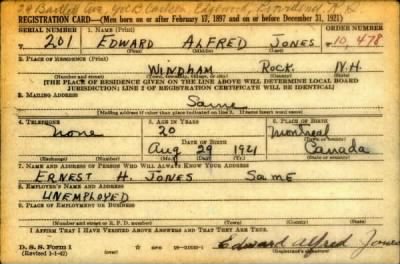 24 Bartlett Ave. Edgewood, R. I.
REGISTRATION CARD—(Men born on or after February 17, 1897 and on or before December 31, 1921)
SERIAL NUMBER 1. NAME (Print) ORDER NUMBER
201 EDWARD ALFRED JONES 10,478
(First) (Middle) (Last)
2. PLACE OF RESIDENCE (Print)
WINDHAM ROCK. N.H.
(Number and street) (Town, township, village, or city) (County) (State)
[THE PLACE OF RESIDENCE GIVEN ON THE LINE ABOVE WILL DETERMINE LOCAL BOARD
JURISDICTION; LINE 2 OF REGISTRATION CERTIFICATE WILL BE IDENTICAL]
3. MAILING ADDRESS
Same
[Mailing address if other than place indicated on line 2. If same insert word same]
4. TELEPHONE 5. AGE IN YEARS 6. PLACE OF BIRTH
None 20 Montreal
DATE OF BIRTH (Town or county)
Aug 29 1921 Canada
(Exchange) (Number) (Mo.) (Day) (Yr.) (State or country)
7. NAME AND ADDRESS OF PERSON WHO WILL ALWAYS KNOW YOUR ADDRESS
ERNEST H. JONES SAME
8. EMPLOYER'S NAME AND ADDRESS
UNEMPLOYED
9. PLACE OF EMPLOYMENT OR BUSINESS
(Number and street or R. F. D. number) (Town) (County) (State)
I AFFIRM THAT I HAVE VERIFIED ABOVE ANSWERS AND THAT THEY ARE TRUE.
D. S. S. Form 1 Edward Alfred Jones
(Revised 1-1-42) (Registrant's signature)